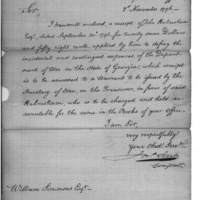 2d November 1796.
Sir,
I transmit enclosed, a receipt of John Habersham
Esqr dated September 30th 1796 for twenty nine Dollars
and fifty eight cents applied by him to defray the
incidental and contingent expences of the Depart
ment of War in the State of Georgia, which receipt
is to be annexed to a Warrant to be issued by the
Secretary of War, on the Treasurer, in favor of said
Habersham, who is to be charged and held
accountable for the same in the Books of your office.
I am Sir,
very respectfully
Your Obedt Servt
William Simmons Esqr